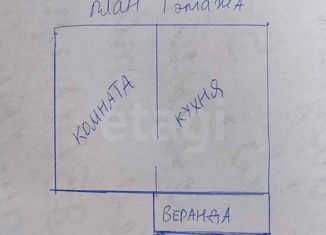 План 1 этажа
КОМНАТА
КУХНЯ
ВЕРАНДА
etagi